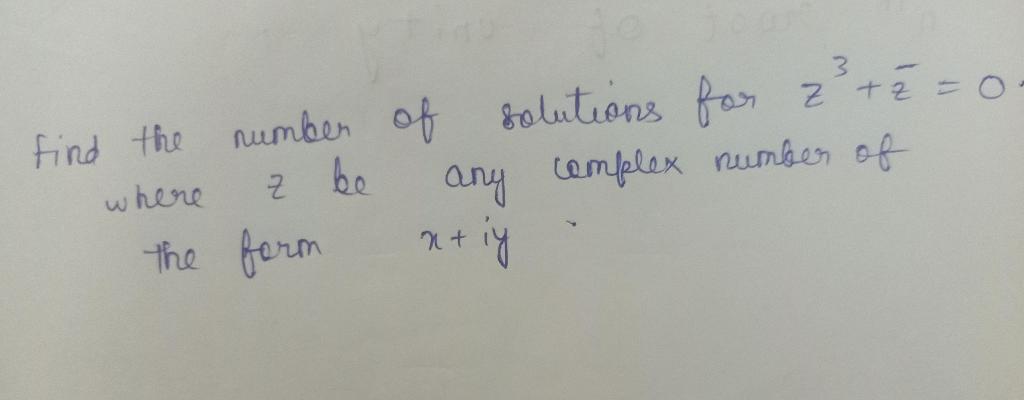 find the number of solutions for z³ + z̄ = 0.
where z be any complex number of
the form x + iy .